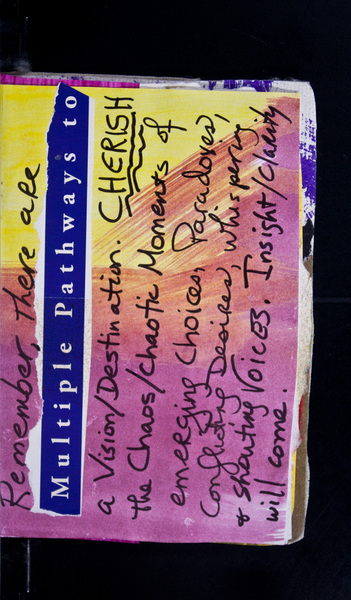 Remember, there are
Multiple Pathways to
a Vision/Destination. CHERISH
the Chaos/Chaotic Moments of
emerging Choices, Paradoxes,
Conflicting Desires, whispering
& shouting Voices. Insight/Clarity
will come.